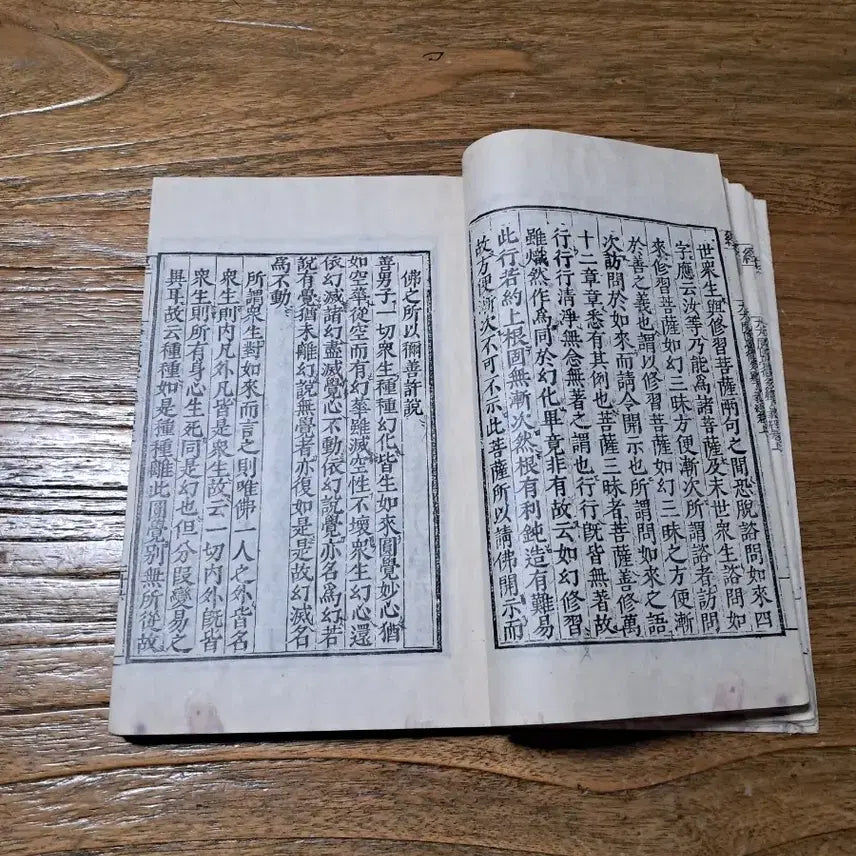 世衆生與修習菩薩兩句之間恐脫諮問如來四
字應云汝等乃能爲諸菩薩及末世衆生諮問如
來修習菩薩如幻三昧方便漸次所謂諮者訪問
於善之義也謂以修習菩薩如幻三昧之方便漸
次訪問於如來而請令開示也所謂問如來之語
十二章章悉有其例也菩薩三昧者菩薩善修萬
行行行清淨無念無著之謂也行行旣皆無著故
雖熾然作爲同於幻化畢竟非有故云如幻修習
此行若約上根固無漸次然根有利鈍造有難易
故方便漸次不可不示此菩薩所以請佛開示而
佛之所以稱善許說
善男子一切衆生種種幻化皆生如來圓覺妙心猶
如空華從空而有幻華雖滅空性不壞衆生幻心還
依幻滅諸幻盡滅覺心不動依幻說覺亦名爲幻若
說有覺猶未離幻說無覺者亦復如是是故幻滅名
爲不動
所謂衆生對如來而言之則唯佛一人之外皆名
衆生則內凡外凡皆是衆生故云一切內外旣皆
衆生則所有身心生死同是幻也但分段變易之
異耳故云種種如是種種離此圓覺別無所從故